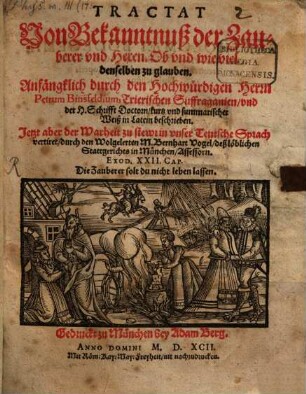 TRACTAT
Von Bekanntnuß der Zau-
berer vnd Hexen. Ob vnd wie viel
denselben zu glauben.
Anfängklich durch den Hochwürdigen Herrn
Petrum Binsfeldium, Trierischen Suffraganien, vnd
der H. Schrifft Doctorn, kurtz vnd summarischer
Weiß in Latein beschrieben.
Jetzt aber der Warheit zu stewr in vnser Teutsche Sprach
vertiert, durch den Wolgelerten M. Bernhart Vogel, deß löblichen
Stattgerichts in München, Assessorn.
EXOD. XXII. CAP.
Die Zauberer solt du nicht leben lassen.
Gedruckt zu München bey Adam Berg.
ANNO DOMINI M. D. XCII.
Mit Röm: Kay: May: Freyheit, nit nachzudrucken.